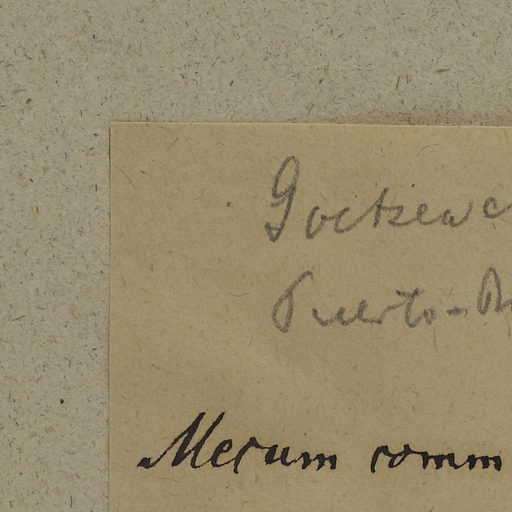 Goetzea c
Puerto-R
Mecum comm